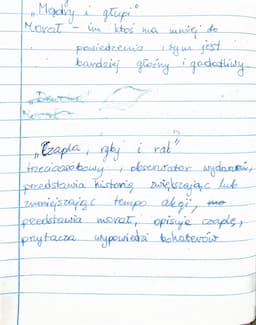 "Mądry i głupi"
Morał - im ktoś ma mniej do
powiedzenia, tym jest
bardziej głośny i gadatliwy.
"Czapla, ryby i rak"
trzecioosobowy, obserwator wydarzeń,
przedstawia historię zwiększając lub
zmniejszając tempo akcji,
przedstawia morał, opisuje czaplę,
przytacza wypowiedzi bohaterów